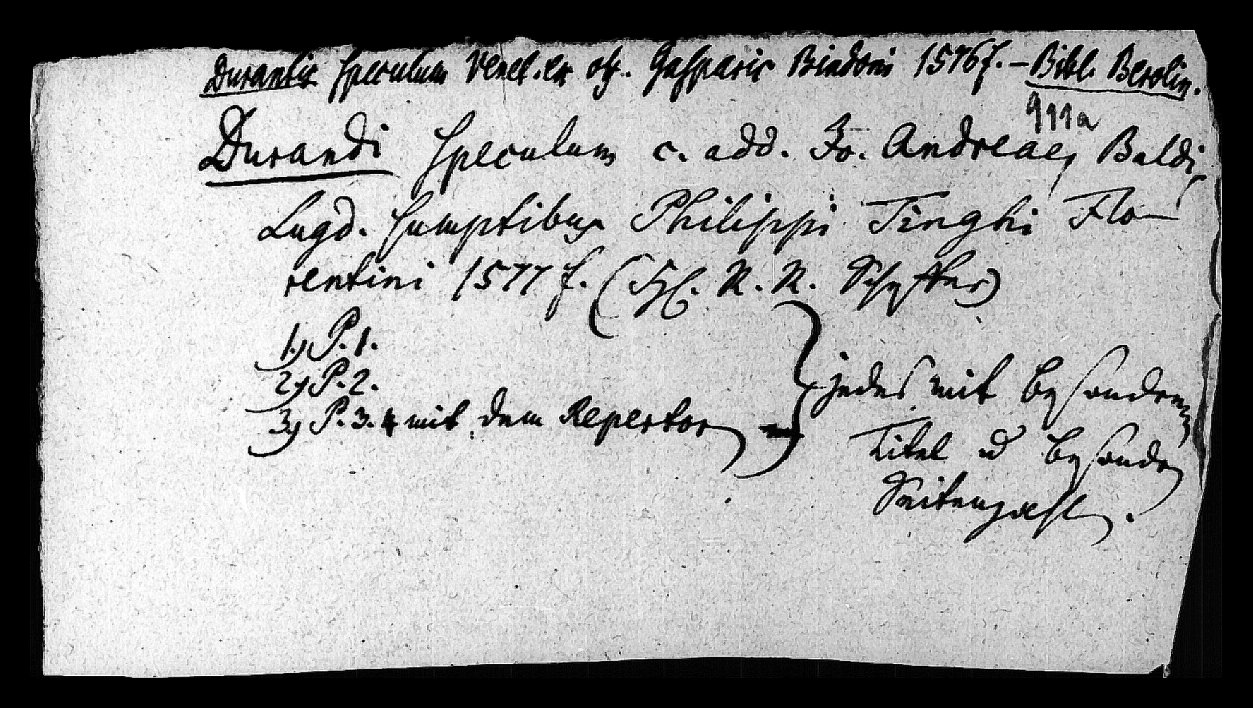 Durantis speculum Venet. ex off. Gasparis Bindoni 1576 f. – Bibl. Berolin.
911a
Durandi speculum c. add. Jo. Andreae, Baldi,
Lugd. sumptibus Philippi Tinghi Flo-
rentini 1577 f. (N. N.
1) P. 1.
2) P. 2.
3) P. 3. 4 mit dem Repertor
jedes mit besonderem
Titel u besonder
Seitenzahl.